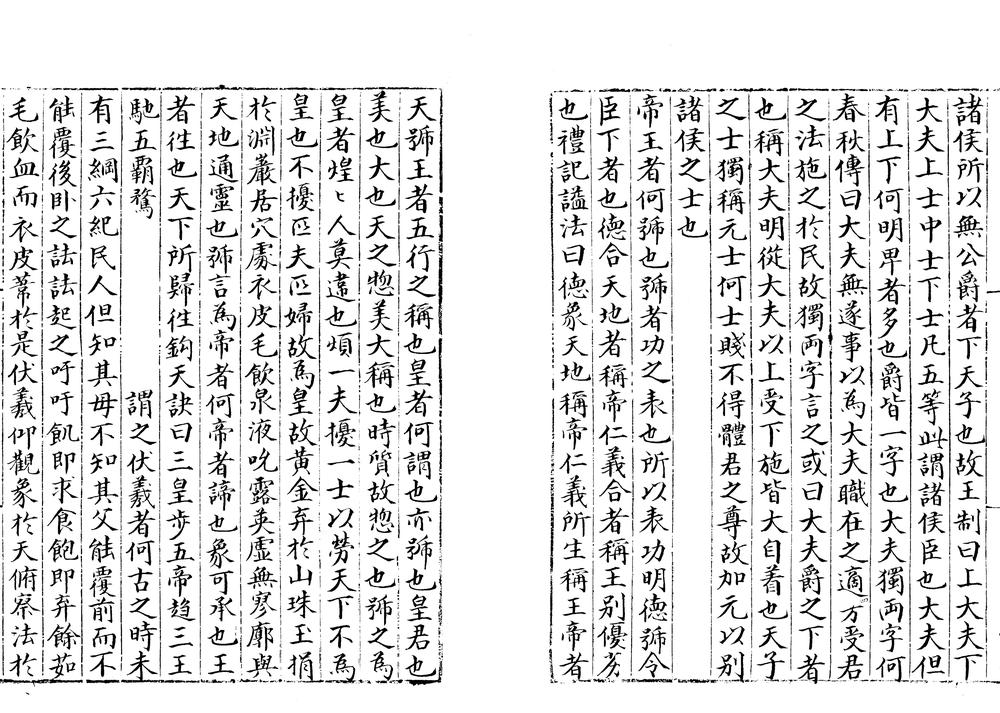 諸侯所以無公爵者下天子也故王制曰上大夫下
大夫上士中士下士凡五等此謂諸侯臣也大夫但
有上下何明卑者多也爵皆一字也大夫獨兩字何
春秋傳曰大夫無遂事以為大夫職在之適方受君
之法施之於民故獨兩字言之或曰大夫爵之下者
也稱大夫明從大夫以上受下施皆大自着也天子
之士獨稱元士何士賤不得體君之尊故加元以别
諸侯之士也
帝王者何號也號者功之表也所以表功明德號令
臣下者也德合天地者稱帝仁義合者稱王别優劣
也禮記謚法曰德象天地稱帝仁義所生稱王帝者
天號王者五行之稱也皇者何謂也亦號也皇君也
美也大也天之惣美大稱也時質故惣之也號之為
皇者煌〻人莫違也煩一夫擾一士以勞天下不為
皇也不擾匹夫匹婦故為皇故黄金弃於山珠玉捐
於淵巖居穴處衣皮毛飲泉液吮露英虚無寥廓與
天地通靈也號言為帝者何帝者諦也象可承也王
者徃也天下所歸徃鈎天訣曰三皇步五帝趍三王
馳五霸騖　謂之伏羲者何古之時未
有三綱六紀民人但知其母不知其父能覆前而不
能覆後卧之詓詓起之吁吁飢即求食飽即弃餘茹
毛飲血而衣皮葦於是伏羲仰觀象於天俯察法於